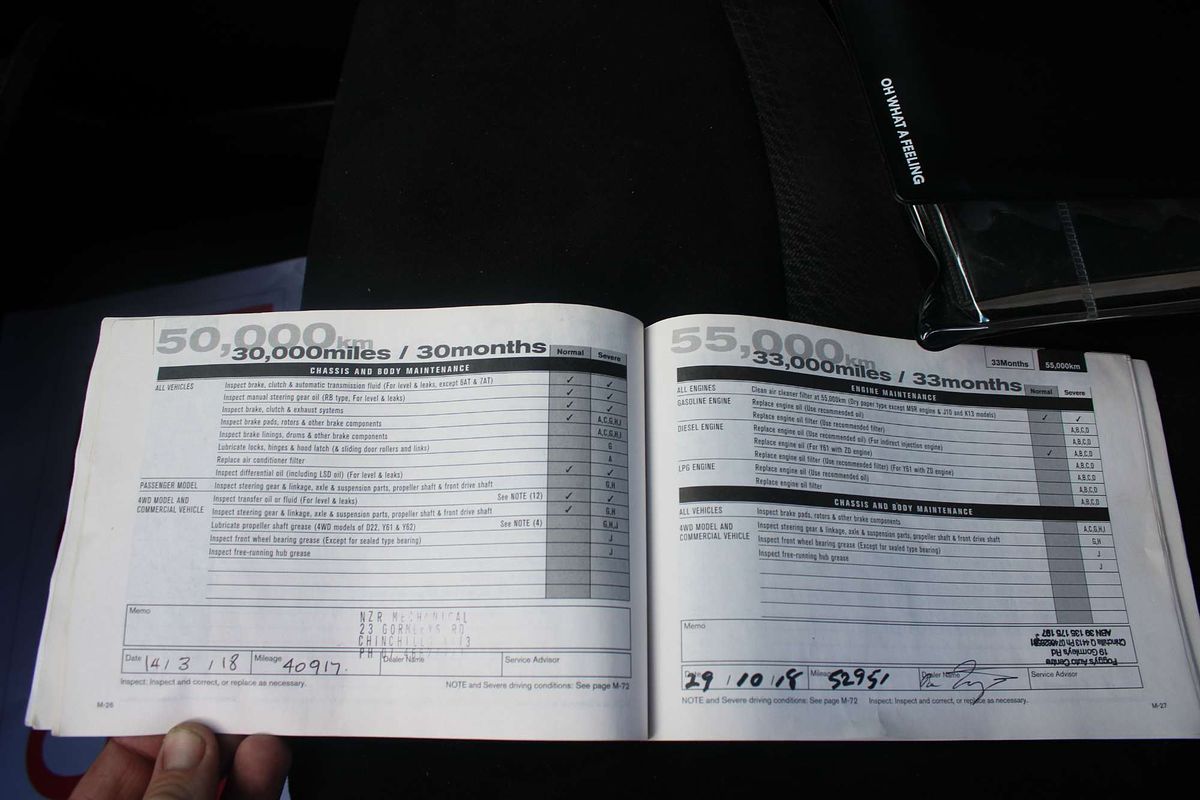 OH WHAT A FEELING
50,000km
30,000miles / 30months
Normal Severe
CHASSIS AND BODY MAINTENANCE
ALL VEHICLES Inspect brake, clutch & automatic transmission fluid (For level & leaks, except 6AT & 7AT) ✓ ✓
Inspect manual steering gear oil (RB type, For level & leaks) ✓ ✓
Inspect brake, clutch & exhaust systems ✓ ✓
Inspect brake pads, rotors & other brake components ✓ A,C,G,H,J
Inspect brake linings, drums & other brake components A,C,G,H,J
Lubricate locks, hinges & hood latch (& sliding door rollers and links) G
Replace air conditioner filter A
Inspect differential oil (including LSD oil) (For level & leaks) ✓ ✓
PASSENGER MODEL Inspect steering gear & linkage, axle & suspension parts, propeller shaft & front drive shaft G,H
4WD MODEL AND Inspect transfer oil or fluid (For level & leaks) See NOTE (12) ✓ ✓
COMMERCIAL VEHICLE Inspect steering gear & linkage, axle & suspension parts, propeller shaft & front drive shaft ✓ G,H
Lubricate propeller shaft grease (4WD models of D22, Y61 & Y62) See NOTE (4) G,H,J
Inspect front wheel bearing grease (Except for sealed type bearing) J
Inspect free-running hub grease J
Memo
NZR MECHANICAL
23 GORMLEYS RD
CHINCHILLA 4413
PH 07
Date 14 / 3 / 18 Mileage 40917. Dealer Name Service Advisor
Inspect: Inspect and correct, or replace as necessary. NOTE and Severe driving conditions: See page M-72
M-26
55,000km
33,000miles / 33months
33Months 55,000km
Normal Severe
ENGINE MAINTENANCE
ALL ENGINES Clean air cleaner filter at 55,000km (Dry paper type except M9R engine & J10 and K13 models) ✓ ✓
GASOLINE ENGINE Replace engine oil (Use recommended oil) A,B,C,D
Replace engine oil filter (Use recommended filter) A,B,C,D
DIESEL ENGINE Replace engine oil (Use recommended oil) (For indirect injection engine) ✓ A,B,C,D
Replace engine oil (For Y61 with ZD engine) A,B,C,D
Replace engine oil filter (Use recommended filter) (For Y61 with ZD engine) A,B,C,D
LPG ENGINE Replace engine oil (Use recommended oil) A,B,C,D
Replace engine oil filter A,B,C,D
CHASSIS AND BODY MAINTENANCE
ALL VEHICLES Inspect brake pads, rotors & other brake components A,C,G,H,J
4WD MODEL AND Inspect steering gear & linkage, axle & suspension parts, propeller shaft & front drive shaft G,H
COMMERCIAL VEHICLE Inspect front wheel bearing grease (Except for sealed type bearing) J
Inspect free-running hub grease
Memo
Poggy's Auto Centre
19 Gormleys Rd
Chinchilla Q 4413 Ph
ABN 39 135 175 197
Date 29 / 10 / 18 Mileage 52951 Dealer Name Service Advisor
NOTE and Severe driving conditions: See page M-72 Inspect: Inspect and correct, or replace as necessary.
M-27